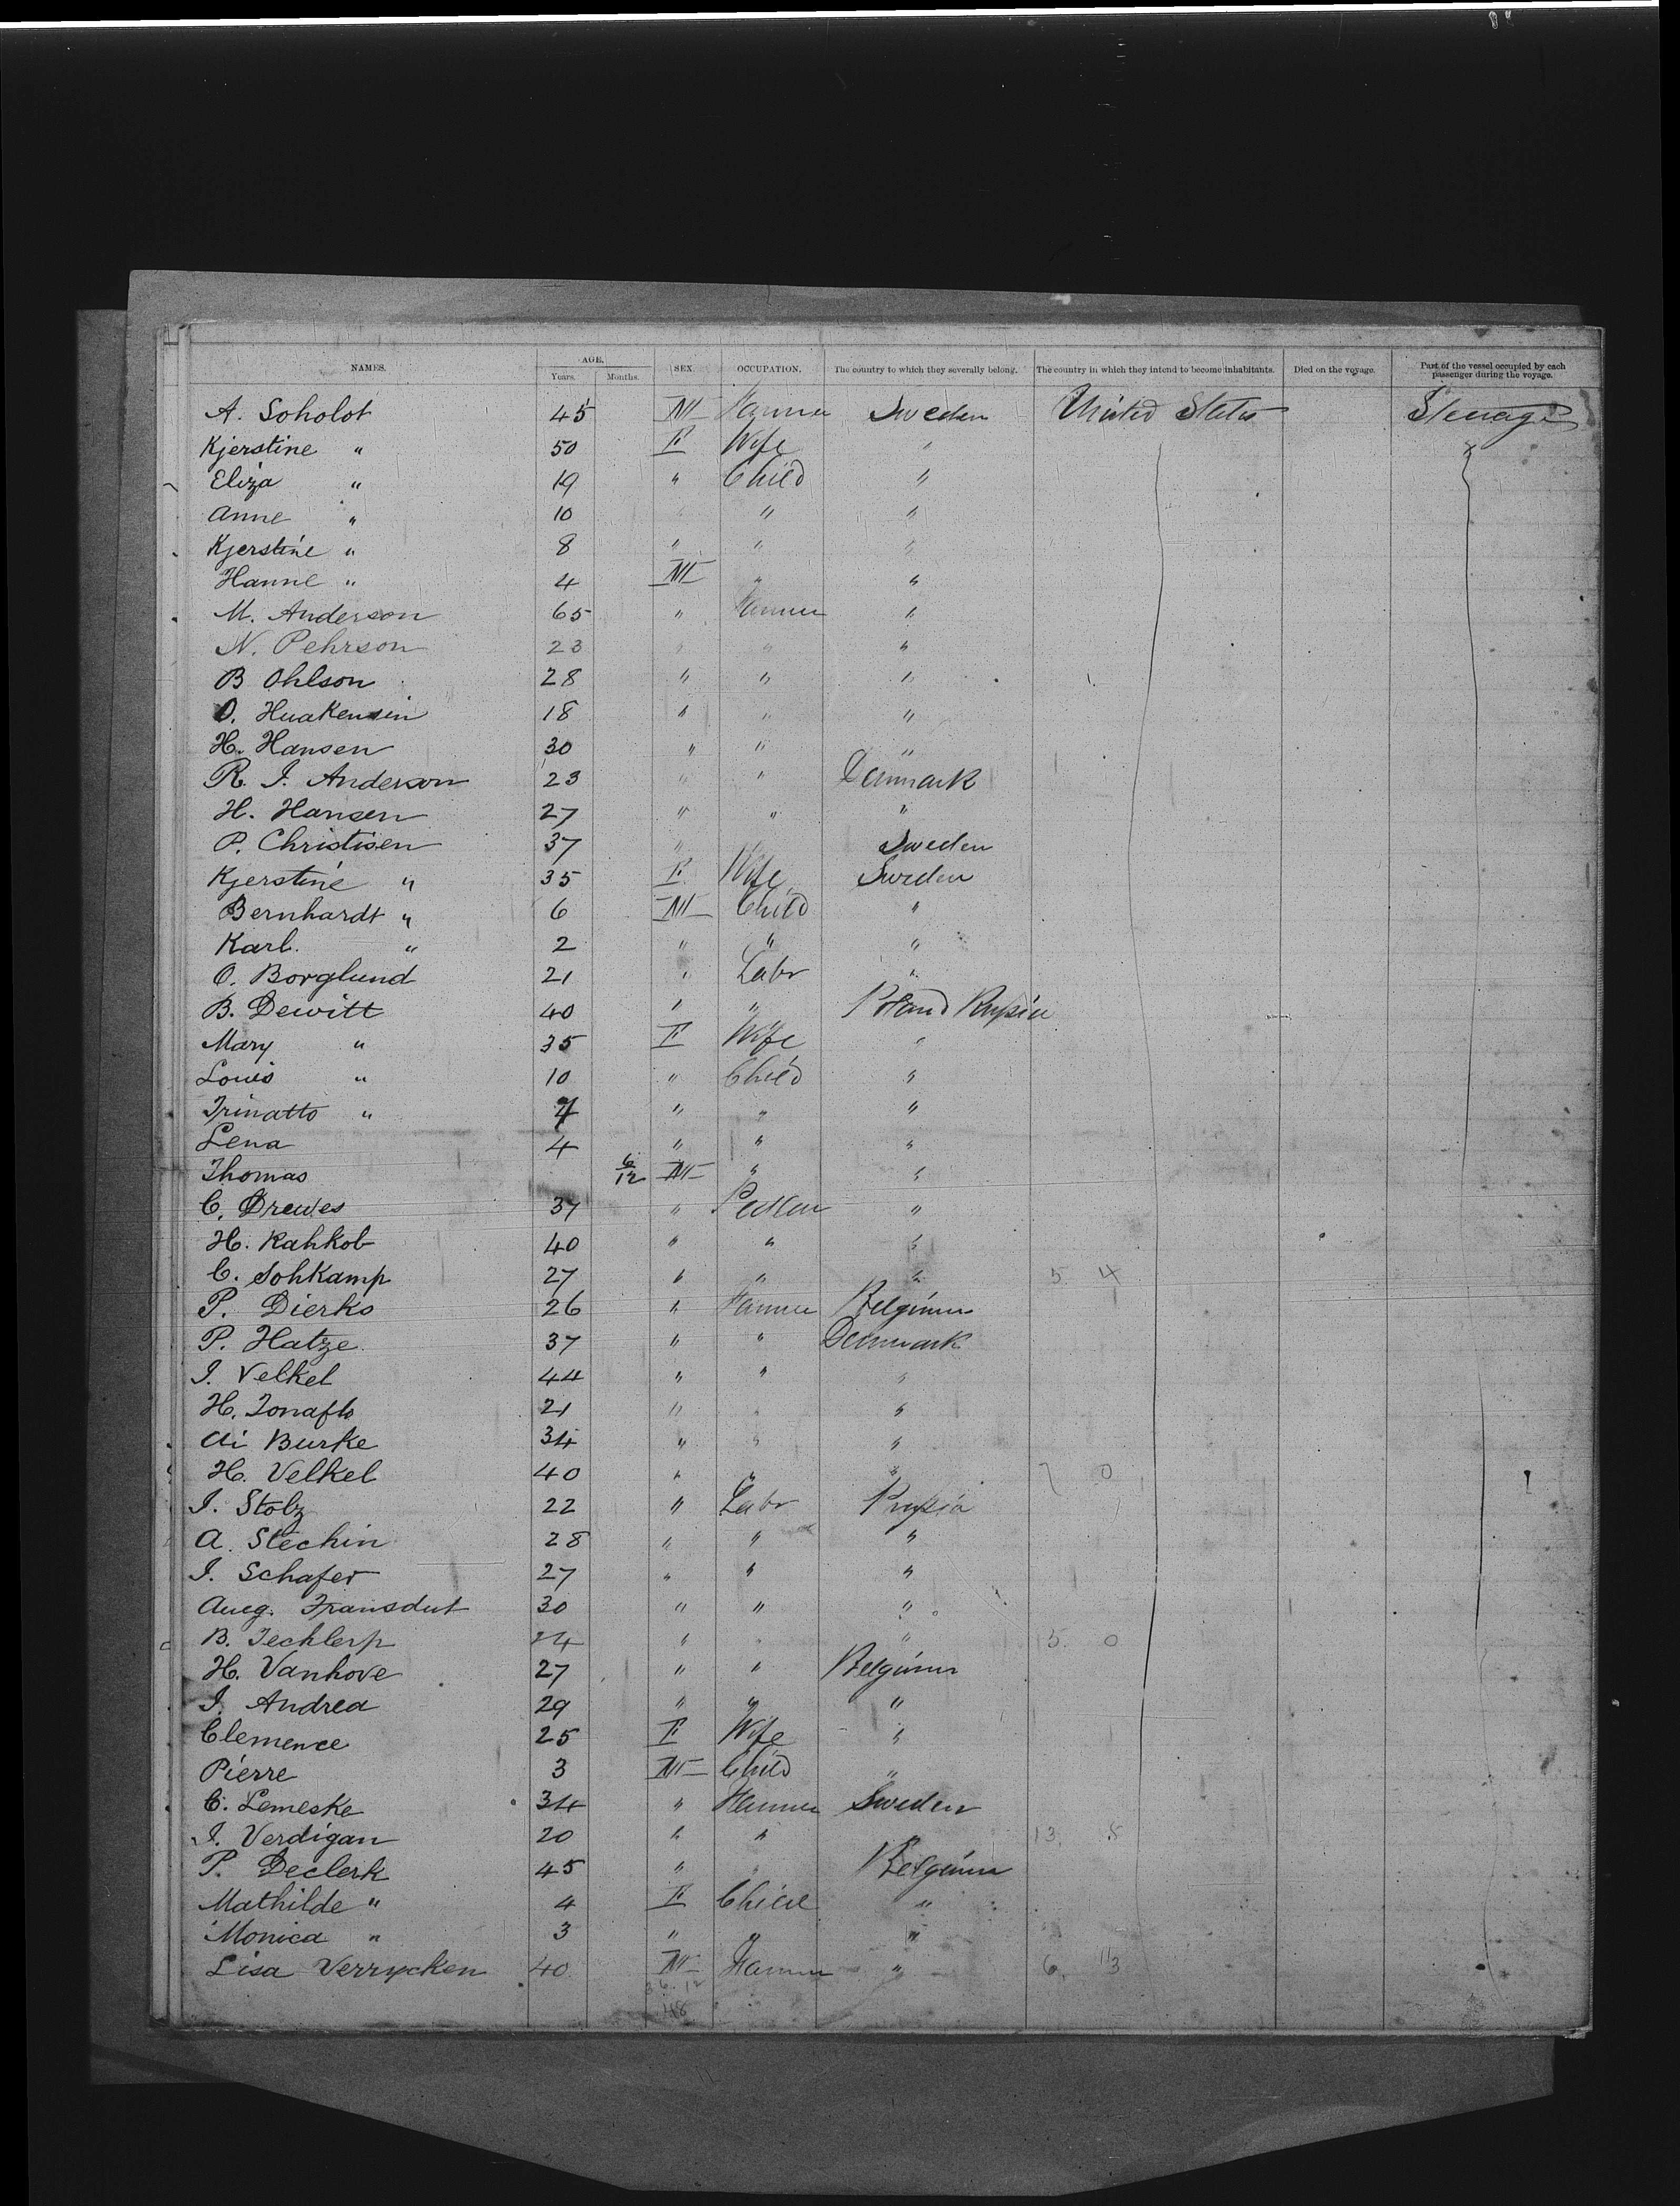 NAMES. AGE. Years. Months. SEX. OCCUPATION. The country to which they severally belong. The country in which they intend to become inhabitants. Died on the voyage. Part of the vessel occupied by each passenger during the voyage.
A. Soholot 45 M Farmer Sweden United States Steerage
Kjerstine " 50 F Wife "
Eliza " 19 " Child "
Anne " 10 " " "
Kjerstine " 8 " " "
Hanne " 4 M " "
M. Anderson 65 " Farmer "
N. Pehrson 23 " " "
B Ohlson 28 " " "
O. Huakensin 18 " " "
H. Hansen 30 " " "
R. J. Anderson 23 " " Denmark
H. Hansen 27 " " "
P. Christisen 37 " Sweden
Kjerstine " 35 F Wife Sweden
Bernhardt " 6 M Child "
Karl. " 2 " " "
O. Borglund 21 " Labr "
B. Dewitt 40 " " Poland Russia
Mary " 35 F Wife "
Louis " 10 " Child "
Trinatto " 7 " " "
Lena 4 " " "
Thomas 6/12 M " "
C. Drewes 37 " "
H. Kahkob 40 " " "
C. Sohkamp 27 " " " 5 4
P. Dierks 26 " Farmer Belgium
P. Hatze 37 " " Denmark
J. Velkel 44 " " "
H. 21 " " "
Burke 34 " " "
H. Velkel 40 " " " 7 0
J. Stolz 22 " Labr Prussia
A. Stechin 28 " " "
J. Schafer 27 " " "
Aug. Fransdut 30 " " "
B. Techlerp 24 " " " 5 0
H. Vanhove 27 " " Belgium
J. Andrea 29 " " "
Clemence 25 F Wife "
Pierre 3 M Child "
C. Lemeske 34 " Farmer Sweden
J. Verdigan 20 " " " 13
P. Declerk 45 " " Belgium
Mathilde " 4 F Child "
Monica " 3 " " "
Lisa Verrycken 40 M Farmer " 6, 3
36.12
48